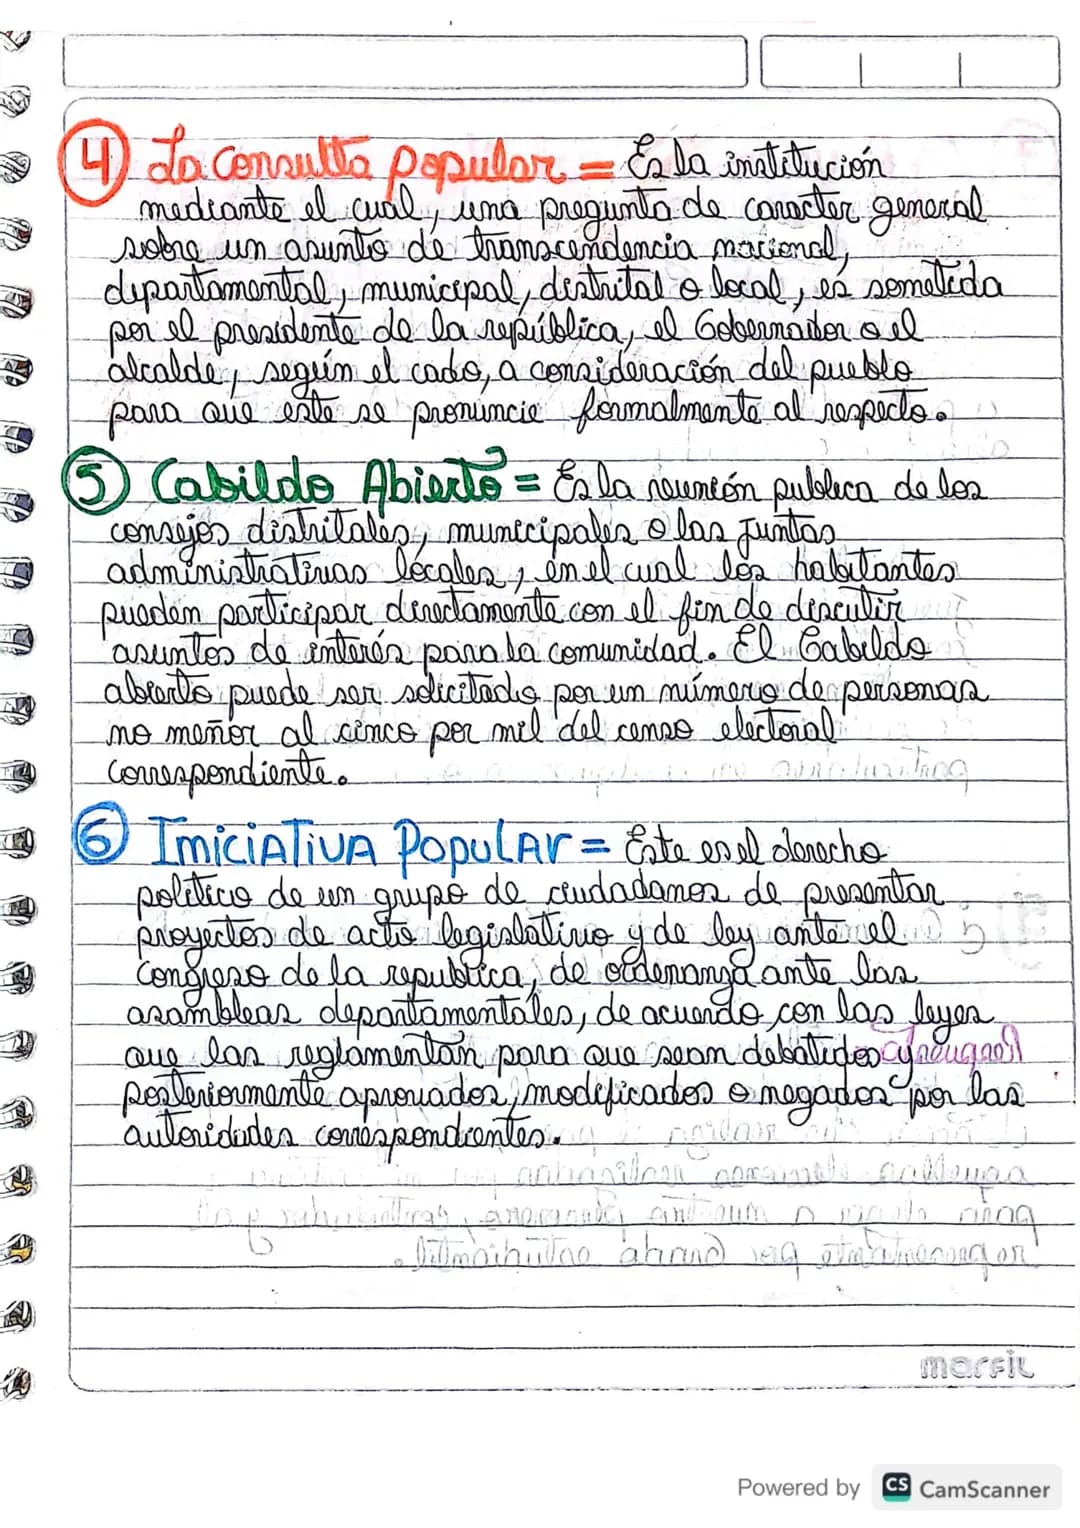 4) La Consulta popular = Es la institución
mediante el cual, una pregunta de caracter general
sobre un asunto de transcendencia nacional,
departamental, municipal, distrital o local, es sometida
por el presidente de la república, el Gobernador o el
alcalde, según el cado, a consideración del pueblo
para que este se pronuncie formalmente al respecto.
5) Cabildo Abierto = Es la reunión publica de los
consejos distritales, municipales o las Juntas
administrativas locales, en el cual los habitantes
pueden participar directamente con el fin de discutir
asuntos de interés para la comunidad. El Cabildo
abierto puede ser solicitado por un número de personas
no menor al cinco por mil del censo electoral
correspondiente.
6) IniciaTiVA PopulAr = Este es el derecho
politico de un grupo de ciudadanos de presentar
proyectos de acto legislativo y de ley ante el
Congreso de la republica, de ordenanza ante las
asambleas departamentales, de acuerdo con las leyes
que las reglamentan para que sean debatidos y
posteriormente aprovados, modificados o negados por las
autoridades correspondientes.
marfil
Powered by CS CamScanner